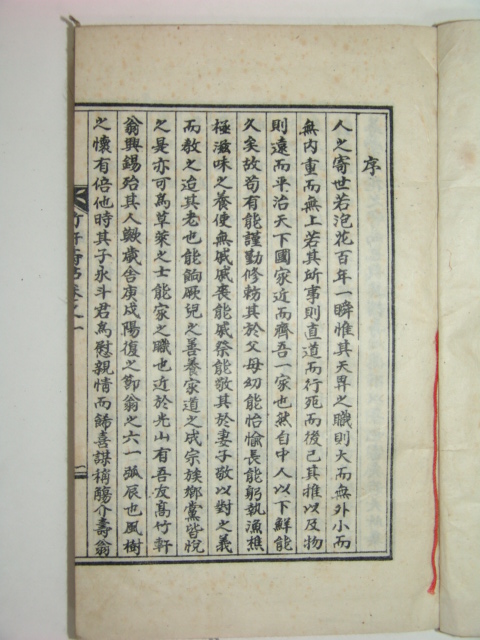 序
人之寄世若泡花百年一瞬惟其天畀之職則大而無外小而
無內重而無上若其所事則直道而行死而後已其推以及物
則遠而平治天下國家近而齊吾一家也然自中人以下鮮能
久矣故苟有能謹勤修勑其於父母幼能怡愉長能躬執漁樵
極滋味之養使無戚戚喪能戚祭能敬其於妻子敬以對之義
而敎之迨其老也能餉厥兒之善養家道之成宗族鄕黨皆悅
之是亦可爲草萊之士能家之職也近於光山有吾友高竹軒
翁興錫殆其人歟歲舍庚戌陽復之節翁之六一弧辰也風樹
之懷有倍他時其子永斗君爲慰親情而歸喜謀稱觴介壽翁
竹軒壽帖卷之一